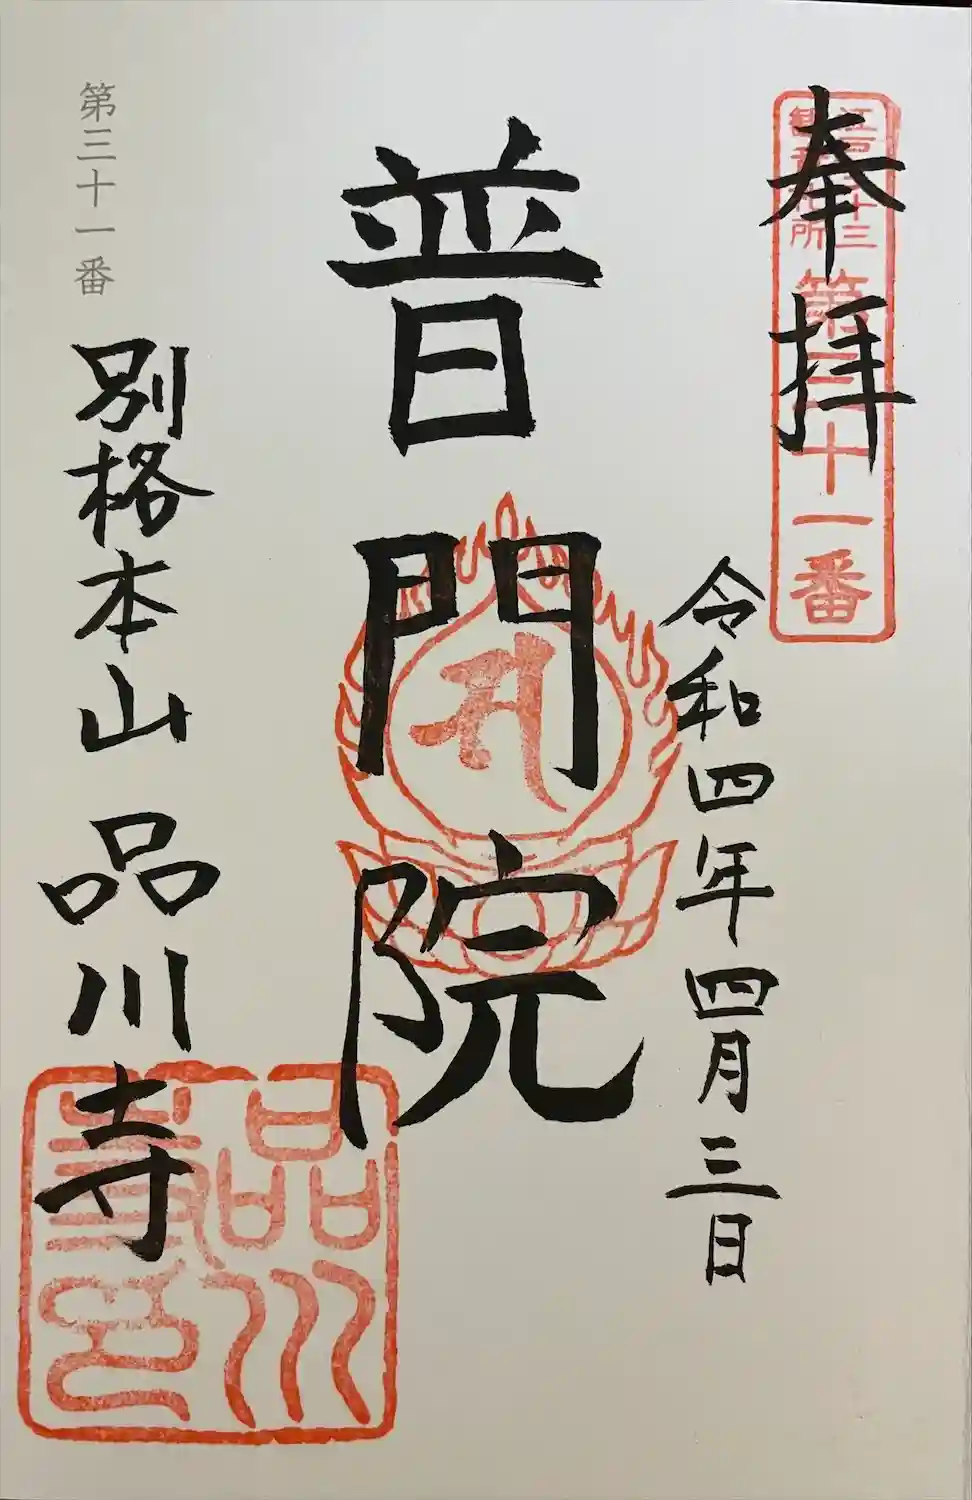 奉拝
江戸三十三
観音札所
第三十一番
令和四年四月三日
普門院
第三十一番
別格本山 品川寺
品川